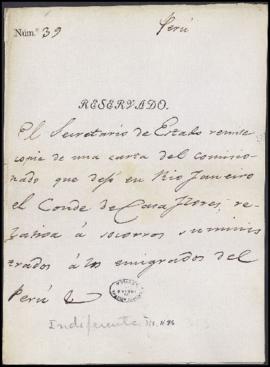 Núm.º 39
Perú
RESERVADO.
El Secretario de Estado remite
copia de una carta del comisio-
nado que dejó en Rio Janeiro
el Conde de Casa Flores, re-
lativa á socorros suminis
trados á los emigrados del
Perú &
Indiferente